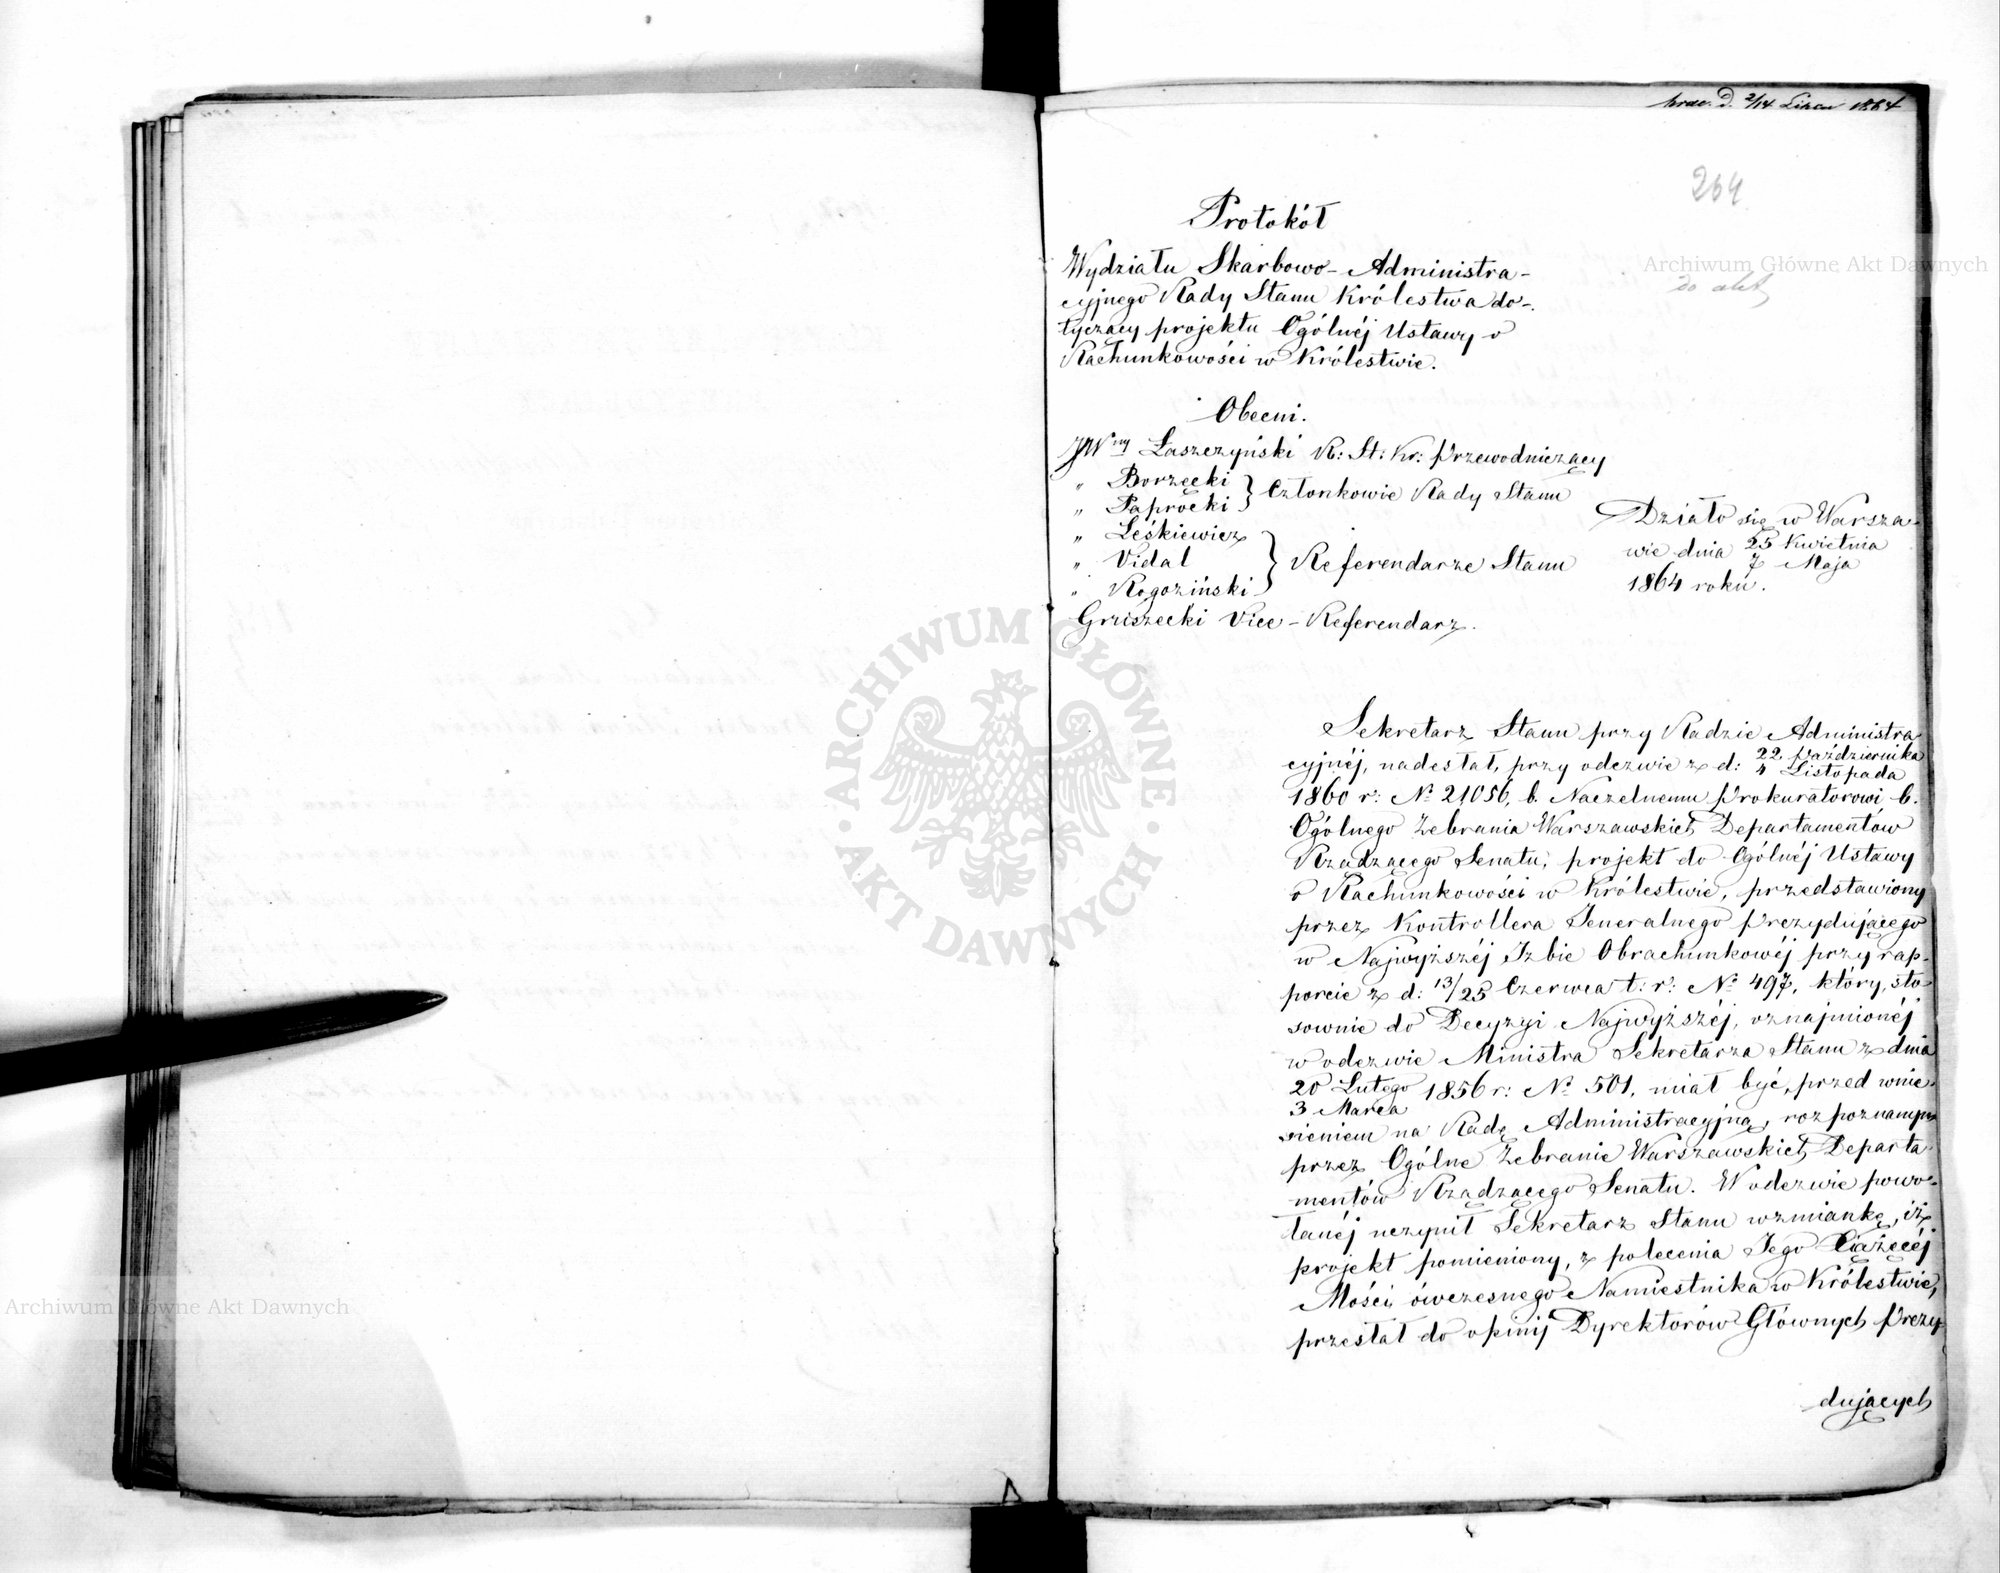 prez. d. 2/14 Lipca 1864
264
Archiwum Główne Akt Dawnych
do akt
Protokół
Wydziału Skarbowo-Administra-
cyjnego Rady Stanu Królestwa do-
tyczący projektu Ogólnéj Ustawy o
Rachunkowości w Królestwie.
Obecni.
JWny Łaszczyński R: St: Kr: Przewodniczący
" Borzęcki
" Paprocki } Członkowie Rady Stanu
" Leśkiewicz
" Vidal } Referendarze Stanu
" Rogoziński
Grziszecki Vice-Referendarz.
Działo się w Warsza-
wie dnia 25 Kwietnia
7 Maja
1864 roku.
Sekretarz Stanu przy Radzie Administra
cyjnéj, nadesłał, przy odezwie z d: 22 Października
4 Listopada
1860 r: Nº 21056, b. Naczelnemu Prokuratorowi b.
Ogólnego Zebrania Warszawskich Departamentów
Rządzącego Senatu, projekt do Ogólnéj Ustawy
o Rachunkowości w Królestwie, przedstawiony
przez Kontrollera Jeneralnego Prezydującego
w Najwyższéj Izbie Obrachunkowéj przy rap-
porcie z d: 13/25 Czerwca t: r: Nº 497, który, sto-
sownie do Decyzyi Najwyższéj, oznajmionéj
w odezwie Ministra Sekretarza Stanu z dnia
20 Lutego 1856 r: Nº 501, miał być, przed wnie-
3 Marca
sieniem na Radę Administracyjną, rozpoznanym
przez Ogólne Zebranie Warszawskich Departa-
mentów Rządzącego Senatu. W odezwie powo-
łanéj uczynił Sekretarz Stanu wzmiankę, iż
projekt pomieniony, z polecenia Jego Xiążęcéj
Mości ówczesnego Namiestnika w Królestwie,
przesłał do opinij Dyrektorów Głównych Prezy-
dujących
ARCHIWUM GŁÓWNE
AKT DAWNYCH
Archiwum Główne Akt Dawnych